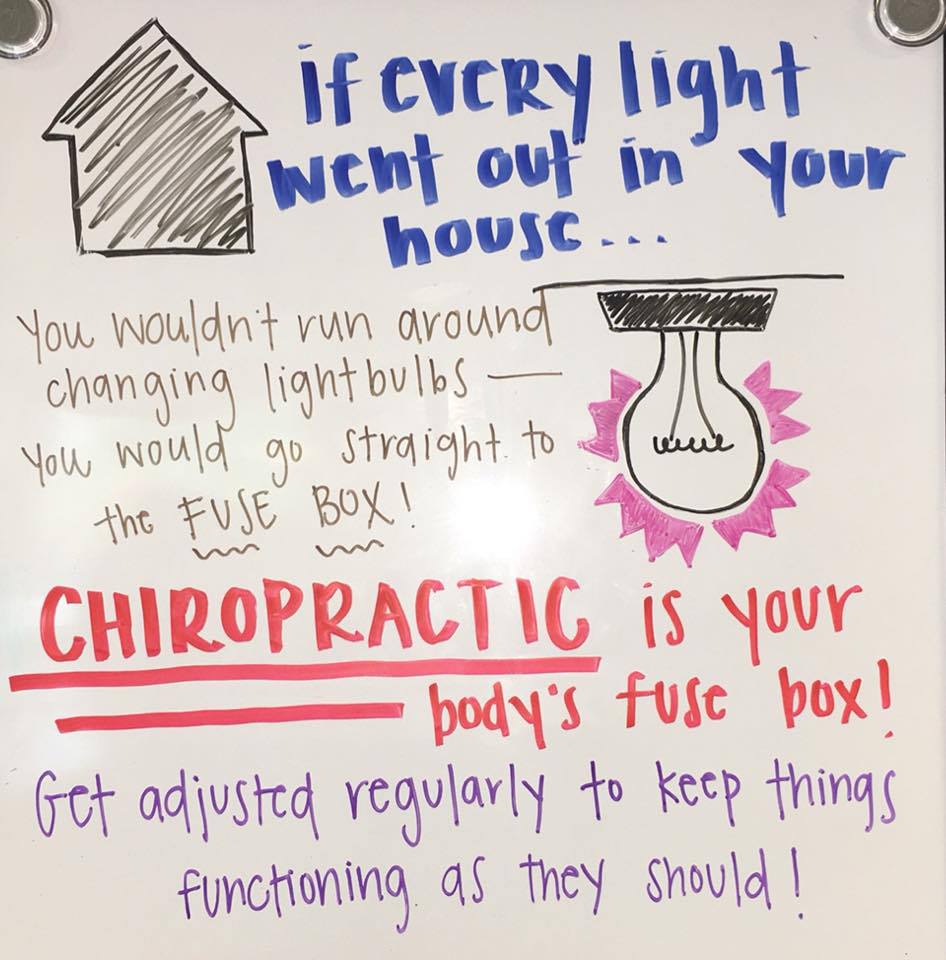 if every light
went out in your
house...
You wouldn't run around
changing lightbulbs —
you would go straight to
the FUSE BOX!
CHIROPRACTIC is your
body's fuse box!
Get adjusted regularly to keep things
functioning as they should!